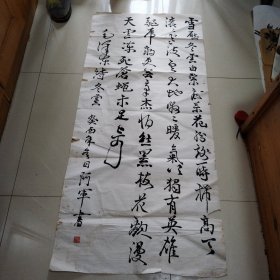 雪压冬云白絮飞万花纷纷一时稀高天
滚滚寒流急大地微微暖气吹独有英雄
驱虎豹更无豪杰怕熊罴梅花欢喜漫
天雪冻死苍蝇未足奇
毛泽东诗冬云
癸酉年冬日阿军书